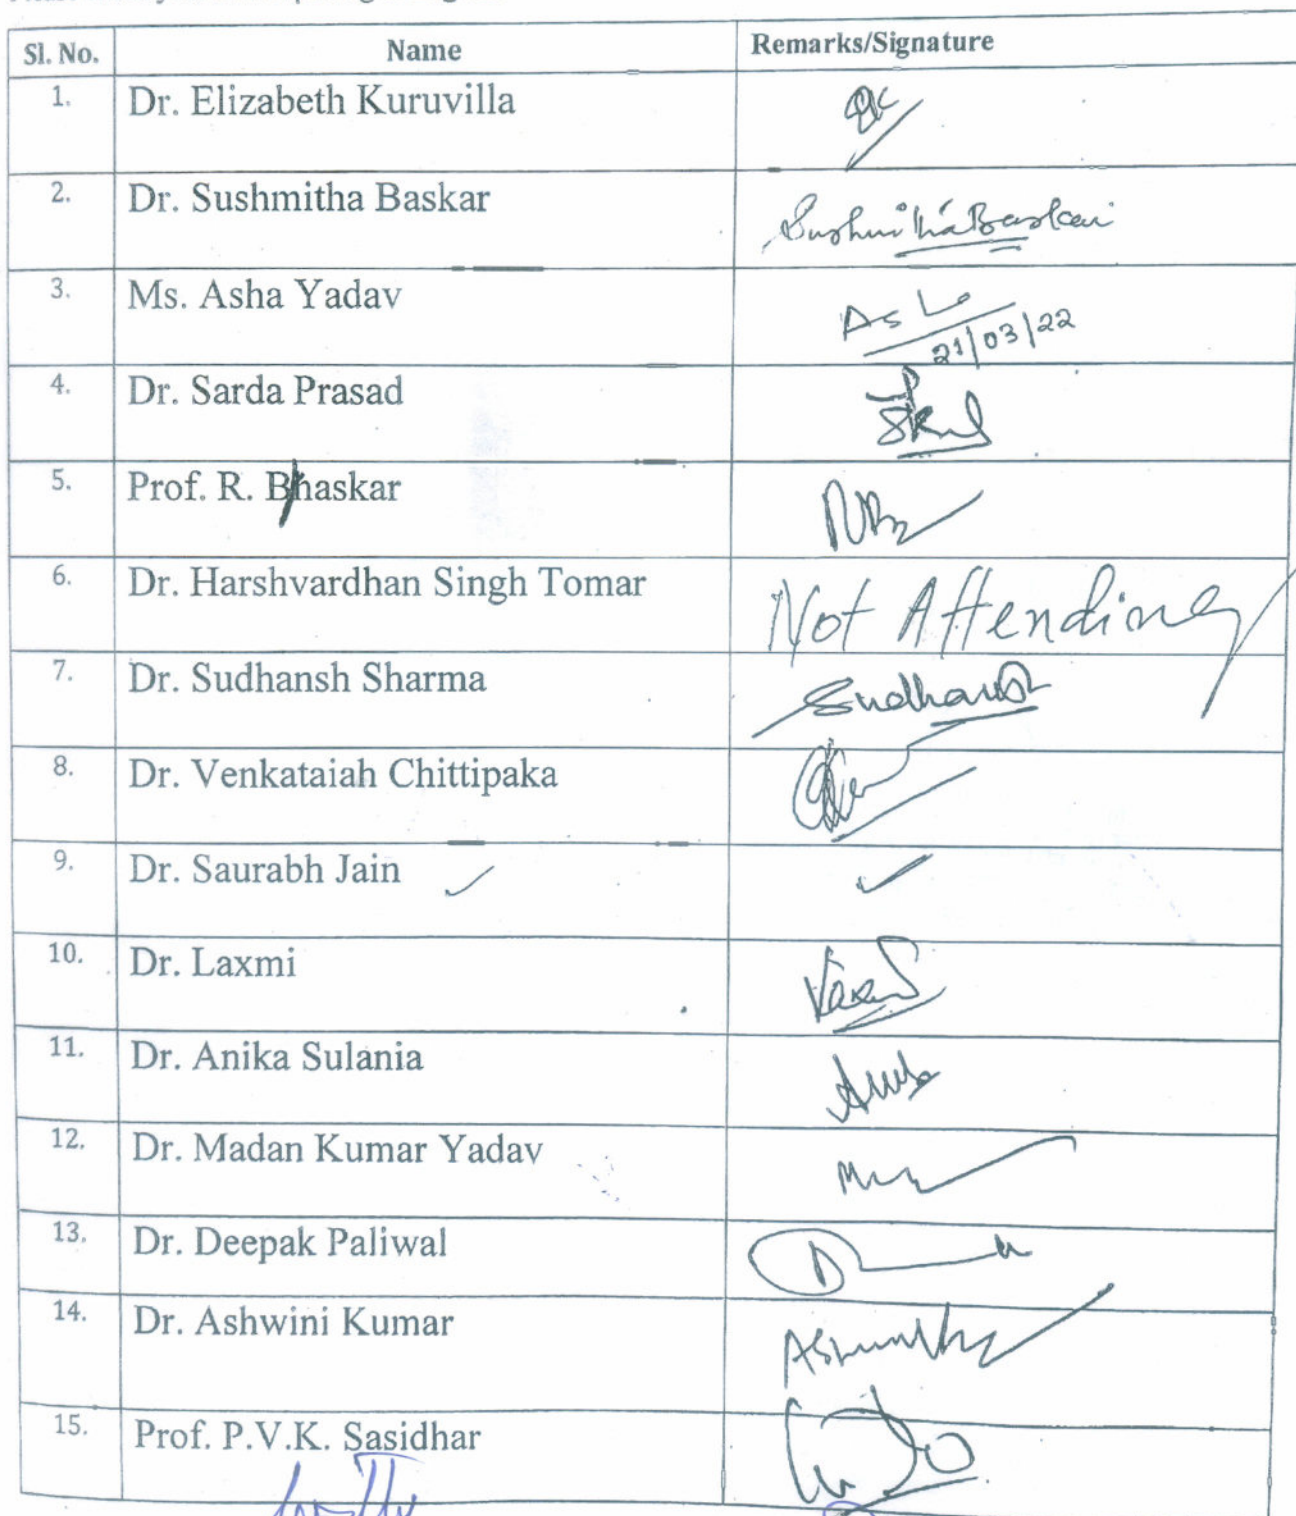 Sl. No. Name Remarks/Signature
1. Dr. Elizabeth Kuruvilla
2. Dr. Sushmitha Baskar Sushmitha Baskar
3. Ms. Asha Yadav
21/03/22
4. Dr. Sarda Prasad
5. Prof. R. Bhaskar
6. Dr. Harshvardhan Singh Tomar Not Attending
7. Dr. Sudhansh Sharma Sudhansh
8. Dr. Venkataiah Chittipaka
9. Dr. Saurabh Jain ✓ ✓
10. Dr. Laxmi
11. Dr. Anika Sulania
12. Dr. Madan Kumar Yadav
13. Dr. Deepak Paliwal
14. Dr. Ashwini Kumar
15. Prof. P.V.K. Sasidhar